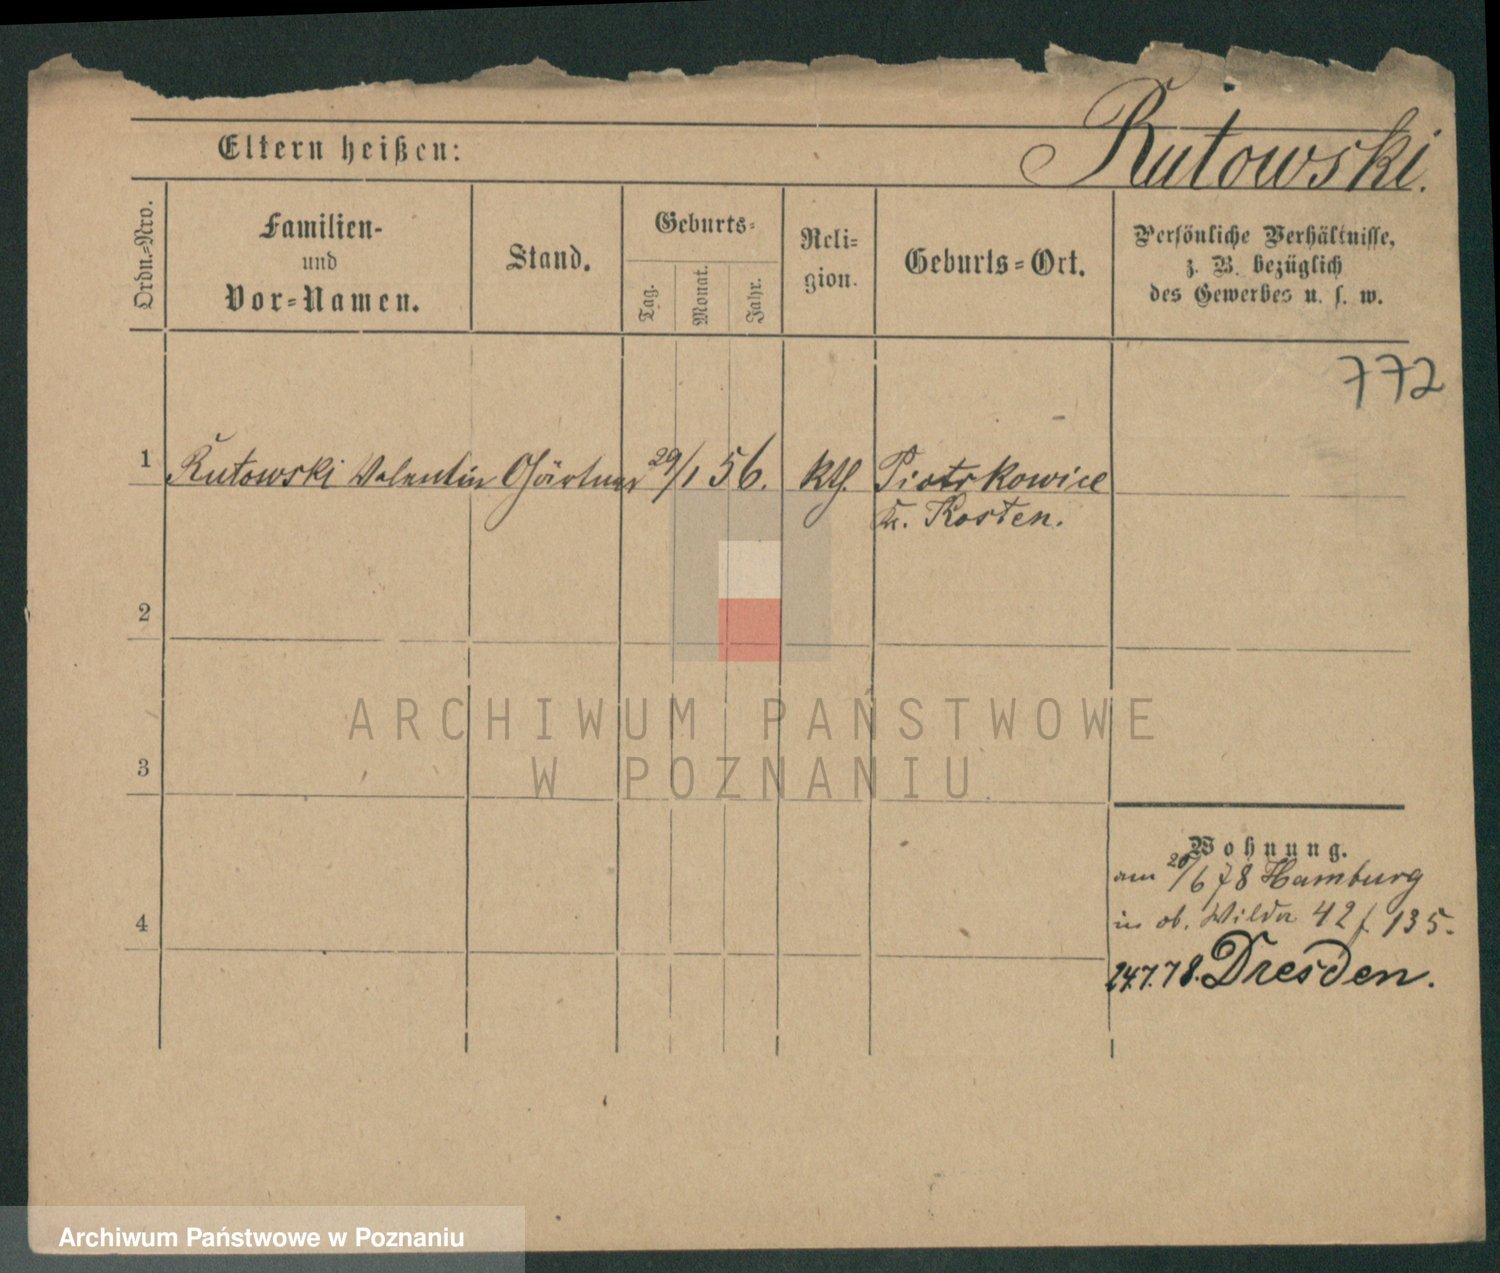 Rutowski.
Eltern heißen:
Ordn.=Nro.
Familien-
und
Vor=Namen.
Stand.
Geburts=
Tag.
Monat.
Jahr.
Reli=
gion.
Geburts=Ort.
Persönliche Verhältnisse,
z. B. bezüglich
des Gewerbes u. s. w.
772
1 Rutowski Valentin Gärtner 29/1 56. kth. Piotrkowice
Kr. Kosten.
2
3
4
ARCHIWUM PAŃSTWOWE
W POZNANIU
Wohnung.
am 20/6 78 Hamburg
in ob. Wilda 42 f. 135.
24.7.78. Dresden.
Archiwum Państwowe w Poznaniu